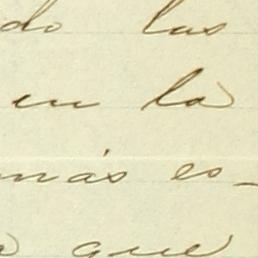 do las
en la
más es-
que